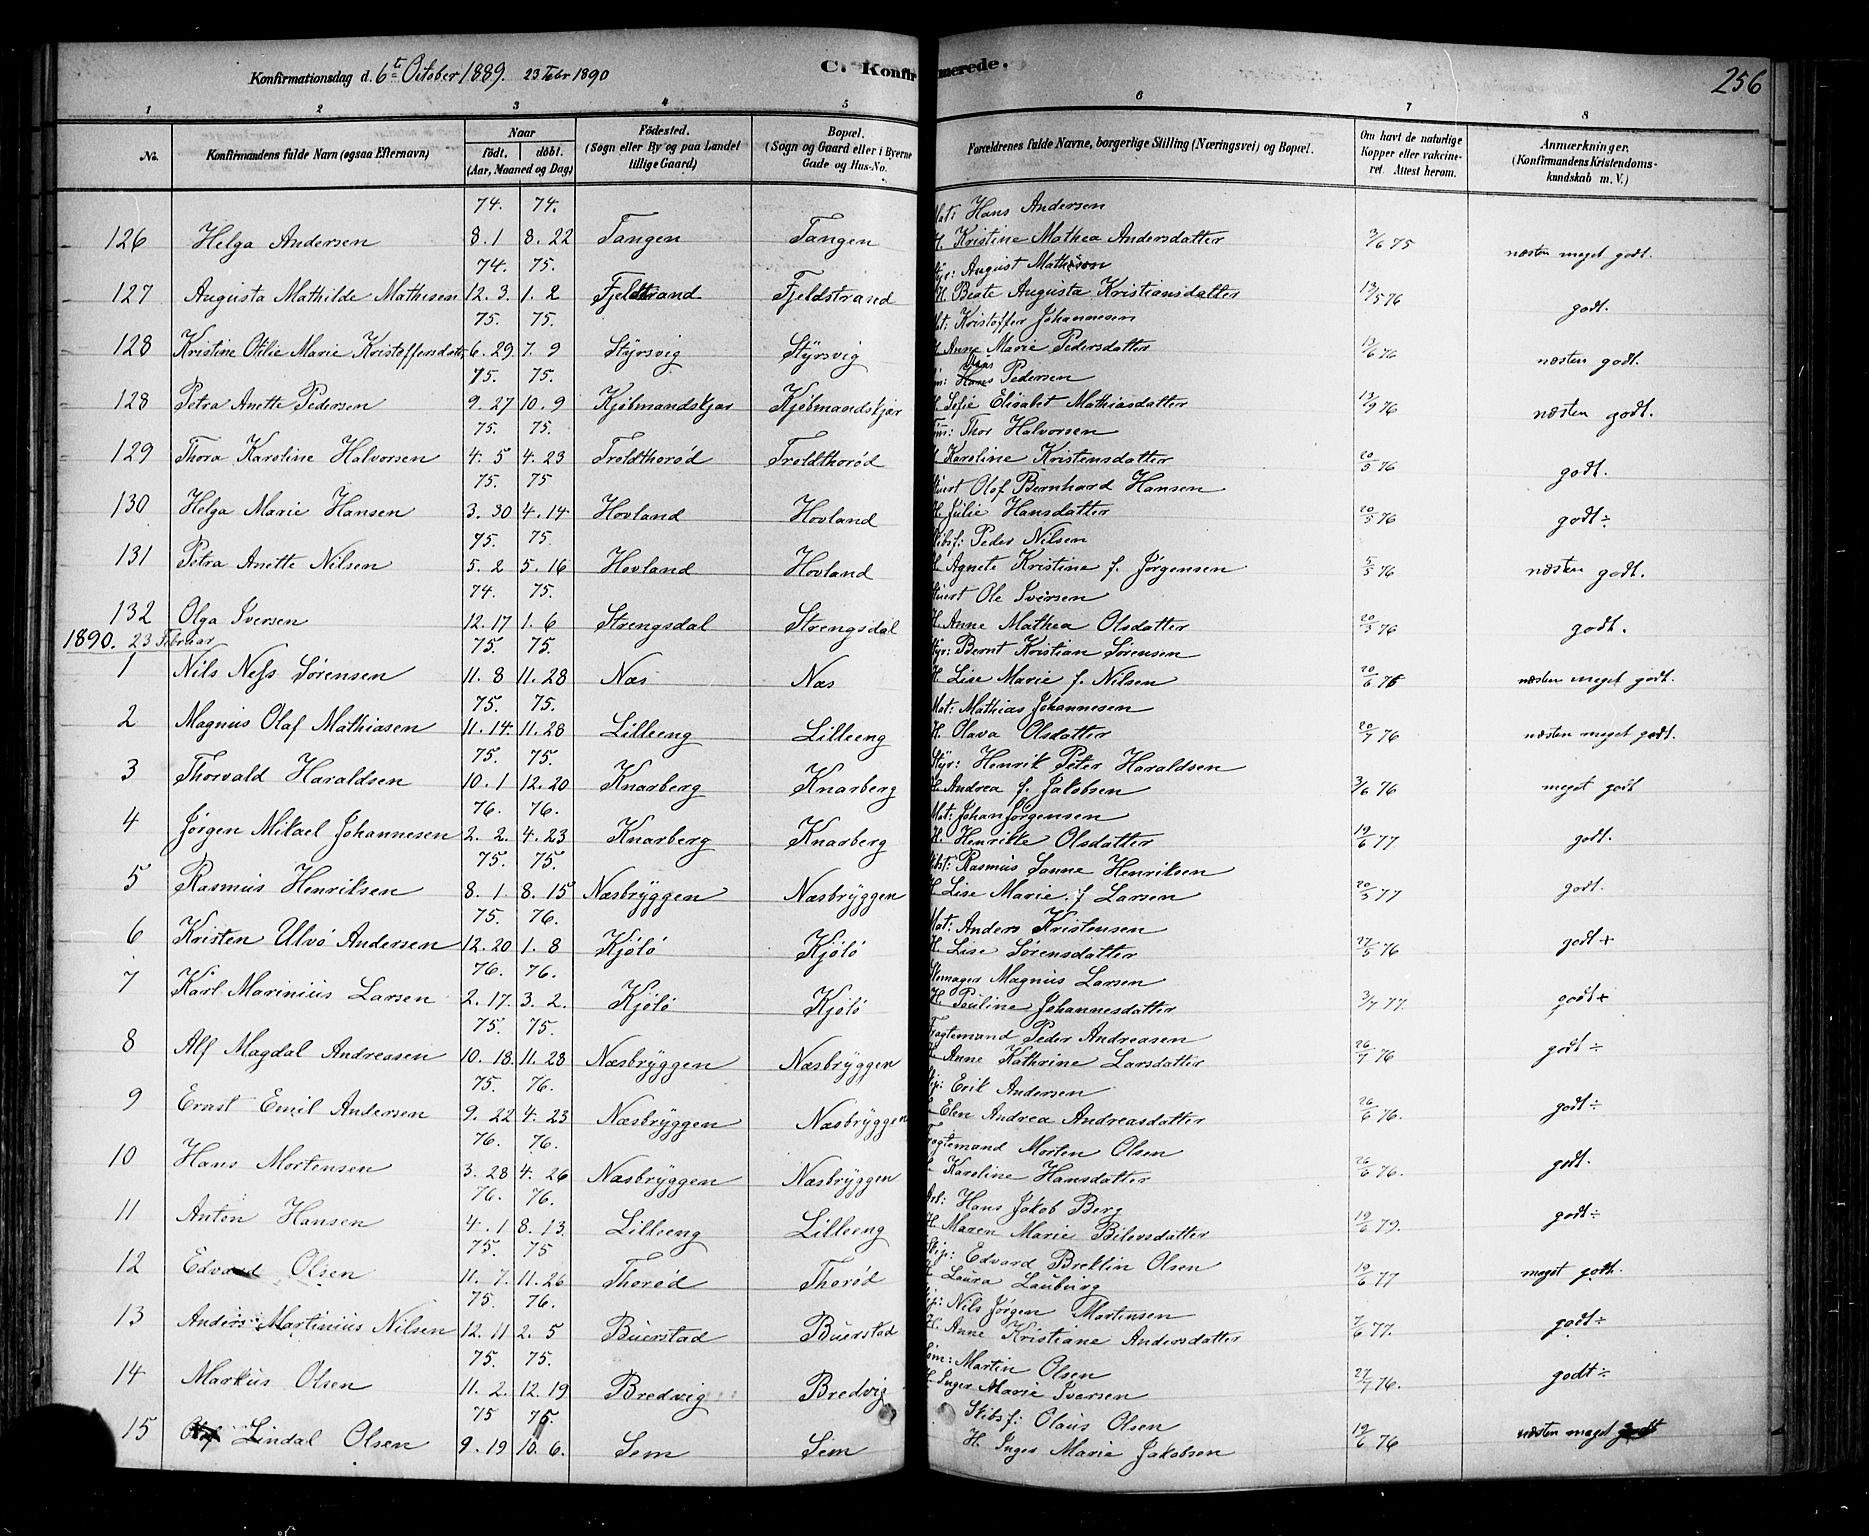 Konfirmationsdag d. 6te October 1889. 23 Febr 1890 C. Konfirmerede. 256
1 2 3 4 5 6 7 8
No. Konfirmandens fulde Navn (ogsaa Efternavn) Naar født. døbt. (Aar, Maaned og Dag) Fødested. (Sogn eller By og paa Landet tillige Gaard) Bopæl. (Sogn og Gaard eller i Byerne Gade og Hus-No. Forældrenes fulde Navne, borgerlige Stilling (Næringsvei) og Bopæl. Om havt de naturlige Kopper eller vakcineret. Attest herom. Anmærkninger. (Konfirmandens Kristendomskundskab m. V.)
74. 74. Mat: Hans Andersen
126 Helga Andersen 8. 1 8. 22 Tangen Tangen H. Kristine Mathea Andersdatter 3/6 75 næsten meget godt.
74. 75. Styr: August Mathison
127 Augusta Mathilde Mathisen 12. 3. 1. 2 Fjeldstrand Fjeldstrand H. Beate Augusta Kristiansdatter 13/5 76 godt.
75. 75. Mat: Kristoffer Johannesen
128 Kristine Otilie Marie Kristoffersdatter 6. 29 7. 9 Styrsvig Styrsvig H. Anne Marie Pedersdatter 13/6 76 næsten godt.
75. 75. Hans Pedersen
128 Petra Anette Pedersen 9. 27 10. 9 Kjøbmandskjær Kjøbmandskjær H. Sofie Elisabet Mathiasdatter 13/9 76 næsten godt.
75. 75. Tøm: Thor Halvorsen
129 Thora Karoline Halvorsen 4. 5 4. 23 Troldthorød Troldthorød H. Karoline Kristensdatter 20/5 76 godt.
75. 75 Stuert Olaf Bernhard Hansen
130 Helga Marie Hansen 3. 30 4. 14 Hovland Hovland H. Julie Hansdatter 20/5 76 godt÷
75. 75. Skibsf: Peder Nilsen
131 Petra Anette Nilsen 5. 2 5. 16 Hovland Hovland H. Agnete Kristine f. Jørgensen 5/5 76 næsten godt.
74. 75. Stuert Ole Iversen
132 Olga Iversen 12. 17 1. 6 Strengsdal Strengsdal H. Anne Mathea Olsdatter 20/5 76 godt.
1890. 23 Februar 75. 75. Styr: Bernt Kristian Sørensen
1 Nils Ness Sørensen 11. 8 11. 28 Næs Næs H. Lise Marie f. Nilsen 20/6 76 næsten meget godt.
75. 75. Mat: Mathias Johannesen
2 Magnus Olaf Mathiasen 11. 14. 11. 28 Lilleeng Lilleeng H. Olava Olsdatter 20/7 76 næsten meget godt.
75. 75. Styr: Henrik Peter Haraldsen
3 Thorvald Haraldsen 10. 1 12. 20 Knarberg Knarberg H. Andrea f. Jakobsen 3/6 76 meget godt
76. 76. Mat: Johan Jørgensen
4 Jørgen Mikael Johannesen 2. 2. 4. 23 Knarberg Knarberg H. Henrikke Olsdatter 19/6 77 godt.
75. 75. Skbst: Rasmus Sanne Henriksen
5 Rasmus Henriksen 8. 1 8. 15 Næsbryggen Næsbryggen H. Lise Marie f Larsen 20/5 77 godt.
75. 76. Mat: Anders Kristensen
6 Kristen Ulvø Andersen 12. 20 1. 8 Kjølø Kjølø H. Lise Sørensdatter 27/5 76 godt+
76. 76. Skomager Magnus Larsen
7 Karl Marinius Larsen 2. 17. 3. 2. Kjølø Kjølø H. Pauline Johannesdatter 3/7 77. godt+
75. 75. Fragtemand Peder Andreasen
8 Alf Magdal Andreasen 10. 18. 11. 28 Næsbryggen Næsbryggen H Anne Kathrine Larsdatter 26/7 76 godt÷
75. 76. Skip: Erik Andersen
9 Ernst Emil Andersen 9. 22 4. 23 Næsbryggen Næsbryggen H. Elen Andrea Andreasdatter 26/6 76. godt÷
76. 76. Fragtemand Morten Olsen
10 Hans Mortensen 3. 28 4. 26 Næsbryggen Næsbryggen H. Karoline Hansdatter 26/6 76. godt.
76. 76. Arb: Hans Jakob Berg
11 Anton Hansen 4. 1 8. 13. Lilleeng Lilleeng H. Maren Marie Bilovsdatter 19/6 79. godt÷
75. 75 Skip: Edvard Brektin Olsen
12 Edvard Olsen 11. 7. 11. 26 Thorød Thorød H Laura Lauburg 19/6 77 meget godt.
75. 76. Skip: Nils Jørgen Mortensen
13 Anders Martinius Nilsen 12. 11 2. 5 Buerstad Buerstad H. Anne Kristiane Andersdatter 7/6 77. godt÷
75. 75. Tøm: Martin Olsen
14 Markus Olsen 11. 2. 12. 19 Bredvig Bredvig H. Inger Marie Iversen 27/7 76. godt÷
75 75. Skibsf: Olaus Olsen
15 Olaf Lindal Olsen 9. 19 10. 6. Sem Sem H. Inger Marie Jakobsen 19/6 76 næsten meget godt